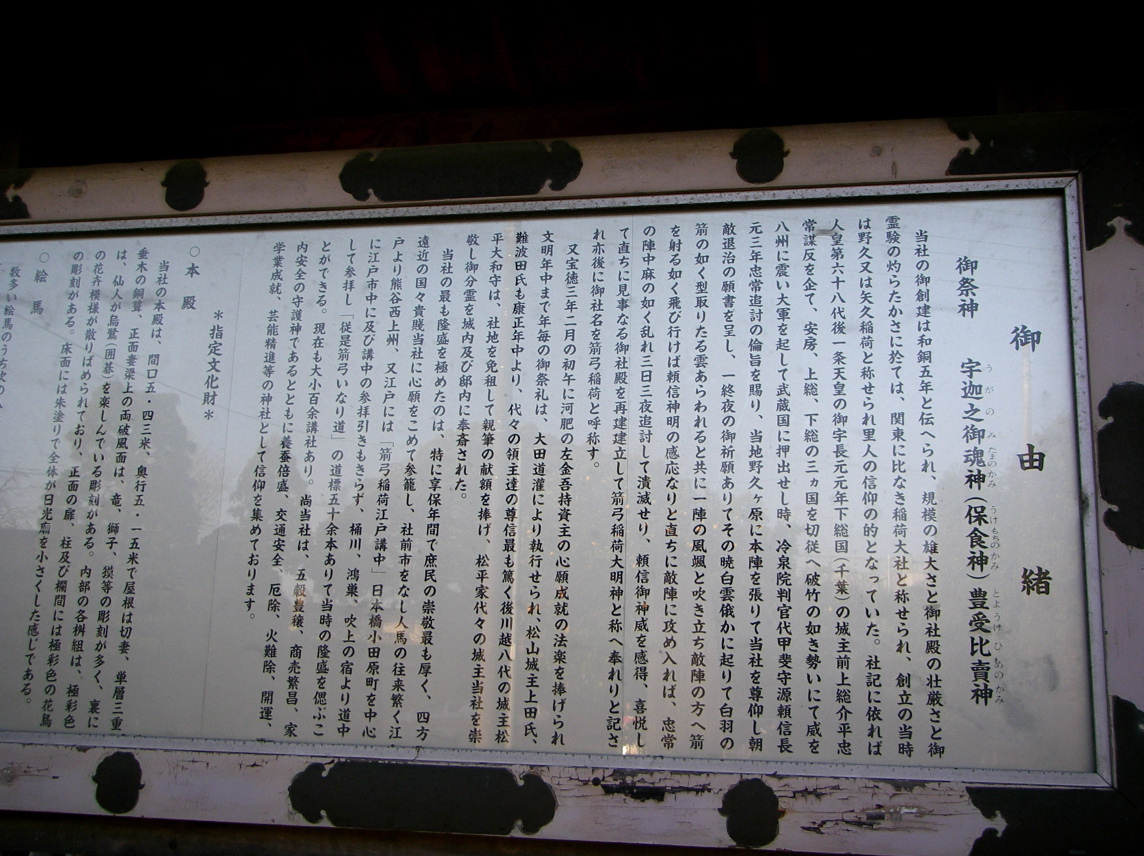 御由緒
御祭神　宇迦之御魂神(保食神)豊受比賣神
うがのみたまのかみ　うけもちのかみ　とようけひめのかみ
当社の御創建は和銅五年と伝へられ、規模の雄大さと御社殿の壮厳さと御
霊験の灼らたかさに捨ては、関東に比なき稲荷大社と称せられ、創立の当時
は野久又は矢久稲荷と称せられ里人の信仰の的となっていた。社記に依れば
人皇第六十八代後一条天皇の御宇長元元年下総国(千葉)の城主前上総介平忠
常謀反を企て、安房、上総、下総の三ヵ国を切従へ破竹の如き勢いにて威を
八州に震い大軍を起して武蔵国に押出せし時、冷泉院判官代甲斐守源頼信長
元三年忠常追討の倫旨を賜り、当地野久ヶ原に本陣を張りて当社を尊仰し朝
敵退治の願書を呈し、一終夜の御祈願ありてその暁白雲俄かに起りて白羽の
箭の如く型取りたる雲あらわれると共に一陣の風颯と吹き立ち敵陣の方へ箭
を射る如く飛び行けば頼信神明の感応なりと直ちに敵陣に攻め入れば、忠常
の陣中麻の如く乱れ三日三夜追討して潰滅せり、頼信御神威を感得、喜悦し
て直ちに見事なる御社殿を再建建立して箭弓稲荷大明神と称へ奉れりと記さ
れ亦後に御社名を箭弓稲荷と呼称す。
又宝徳三年二月の初午に河肥の左金吾持資主の心願成就の法楽を捧げられ
文明年中まで年毎の御祭礼は、大田道灌により執行せられ、松山城主上田氏、
難波田氏も康正年中より、代々の領主達の尊信最も篤く後川越八代の城主松
平大和守は、社地を免租して親筆の献額を捧げ、松平家代々の城主当社を崇
敬し御分霊を城内及び邸内に奉斎された。
当社の最も隆盛を極めたのは、特に享保年間で庶民の崇敬最も厚く、四方
遠近の国々貴賤当社に心願をこめて参籠し、社前市をなし人馬の往来繁く江
戸より熊谷西上州、又江戸には「箭弓稲荷江戸講中」日本橋小田原町を中心
に江戸市中に及び講中の参拝引きもきらず、桶川、鴻巣、吹上の宿より道中
して参拝し「従是箭弓いなり道」の道標五十余本ありて当時の隆盛を偲ぶこ
とができる。現在も大小百余講社あり。尚当社は、五穀豊穣、商売繁昌、家
内安全の守護神であるとともに養蚕倍盛、交通安全、厄除、火難除、開運、
学業成就、芸能精進等の神社として信仰を集めております。
＊指定文化財＊
○本殿
当社の本殿は、間口五・四三米、奥行五・一五米で屋根は切妻、単層三重
垂木の銅葺、正面妻梁上の両破風面は、竜、獅子、獏等の彫刻が多く、裏に
は、仙人が烏鷺(囲碁)を楽しんでいる彫刻がある。内部の各桝組は、極彩色
の花卉模様が散りばめられており、正面の扉、柱及び欄間には極彩色の花鳥
の彫刻がある。床面には朱塗りで全体が日光廟を小さくした感じである。
○絵馬
数多い絵馬のうち次の